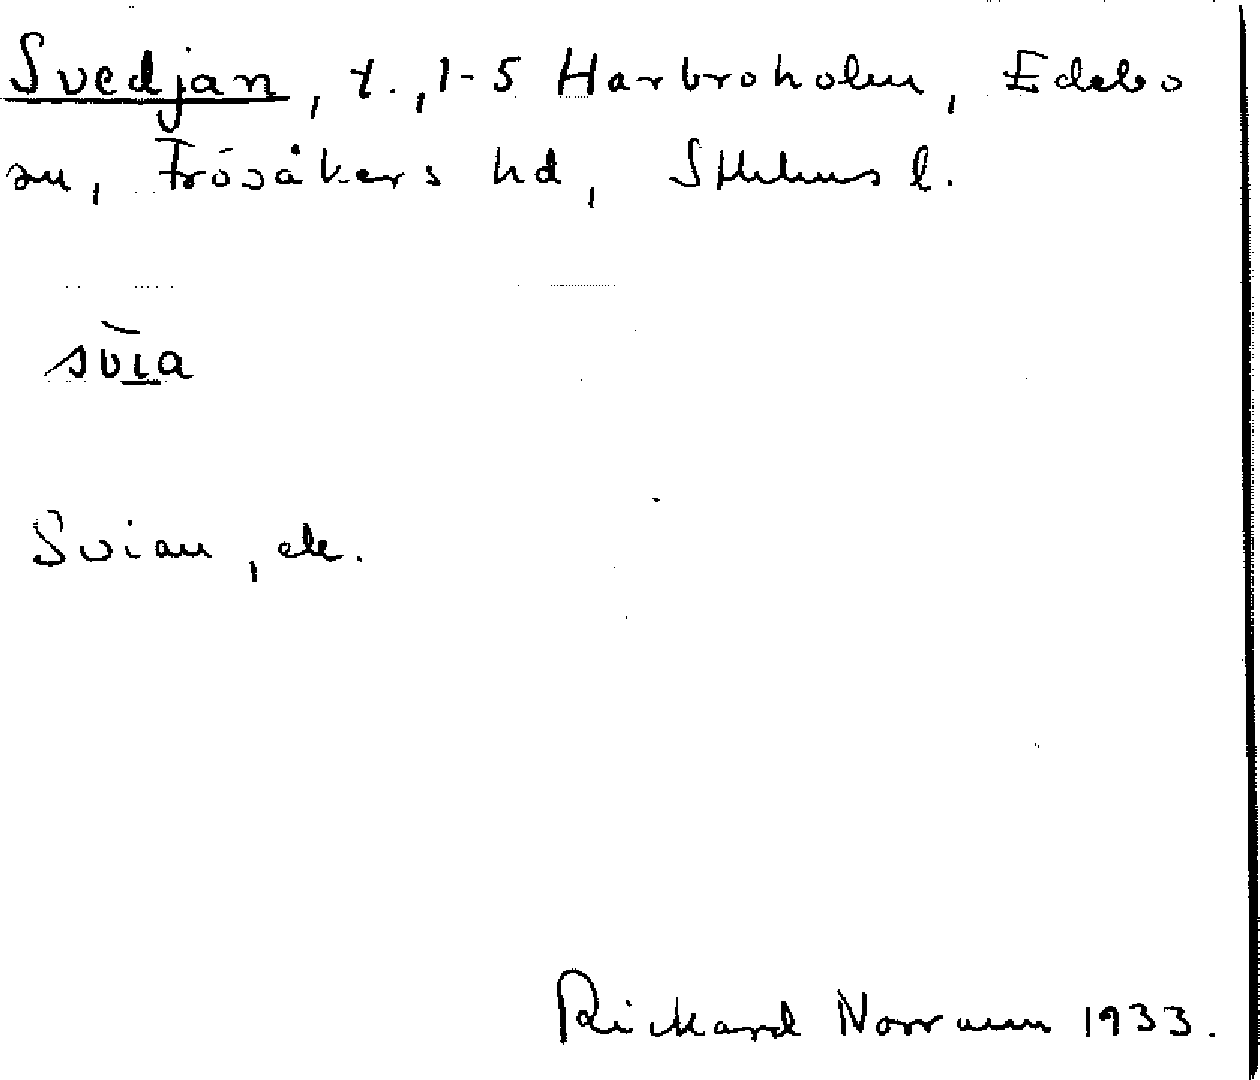 Svedjan, t., 1-5 Harbroholm, Edebo
sn, Frösåkers hd, Sthlms l.
svìa
Svian, ek.
Rickard Norrman 1933.